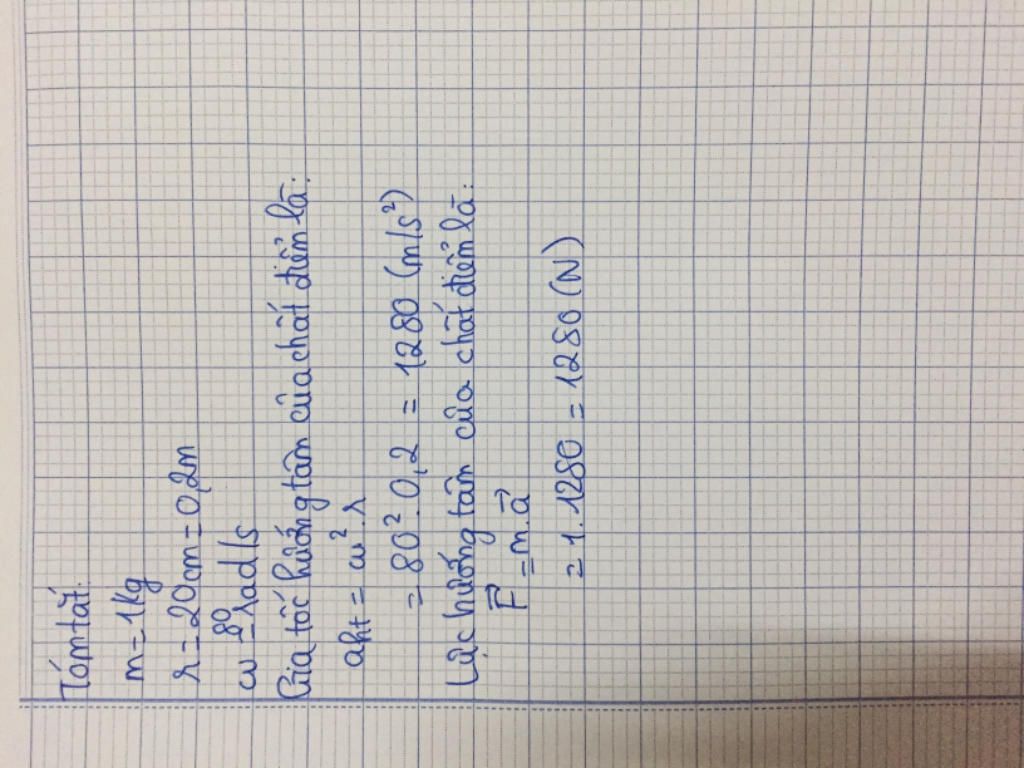 Tóm tắt:
m = 1kg
r = 20cm = 0,2m
ω = 80 rad/s
Gia tốc hướng tâm của chất điểm là:
aht = ω². r
= 80². 0,2 = 1280 (m/s²)
Lực hướng tâm của chất điểm là:
F⃗ = m.a⃗
= 1. 1280 = 1280 (N)